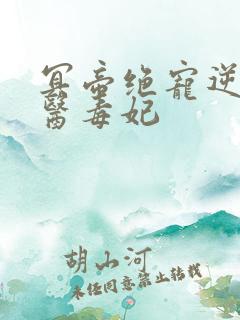 冥帝绝寵逆
醫毒妃
胡山河
未经同意禁止转载